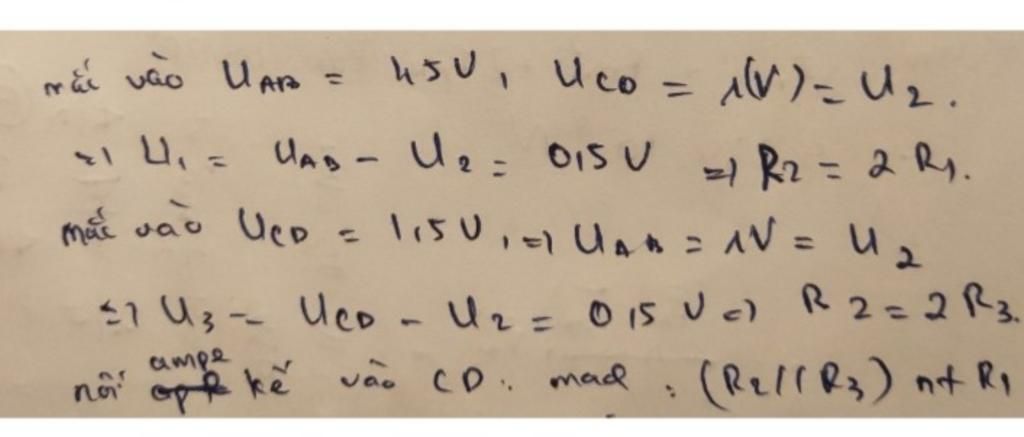 mắc vào UAB = 1,5V, UCD = 1(V) = U2.
=> U1 = UAB - U2 = 0,5V => R2 = 2R1.
mắc vào UCD = 1,5V, => UAB = 1V = U2
=> U3 = UCD - U2 = 0,5V => R2 = 2R3.
nối ampe kế vào CD: mạch: (R2//R3) nt R1